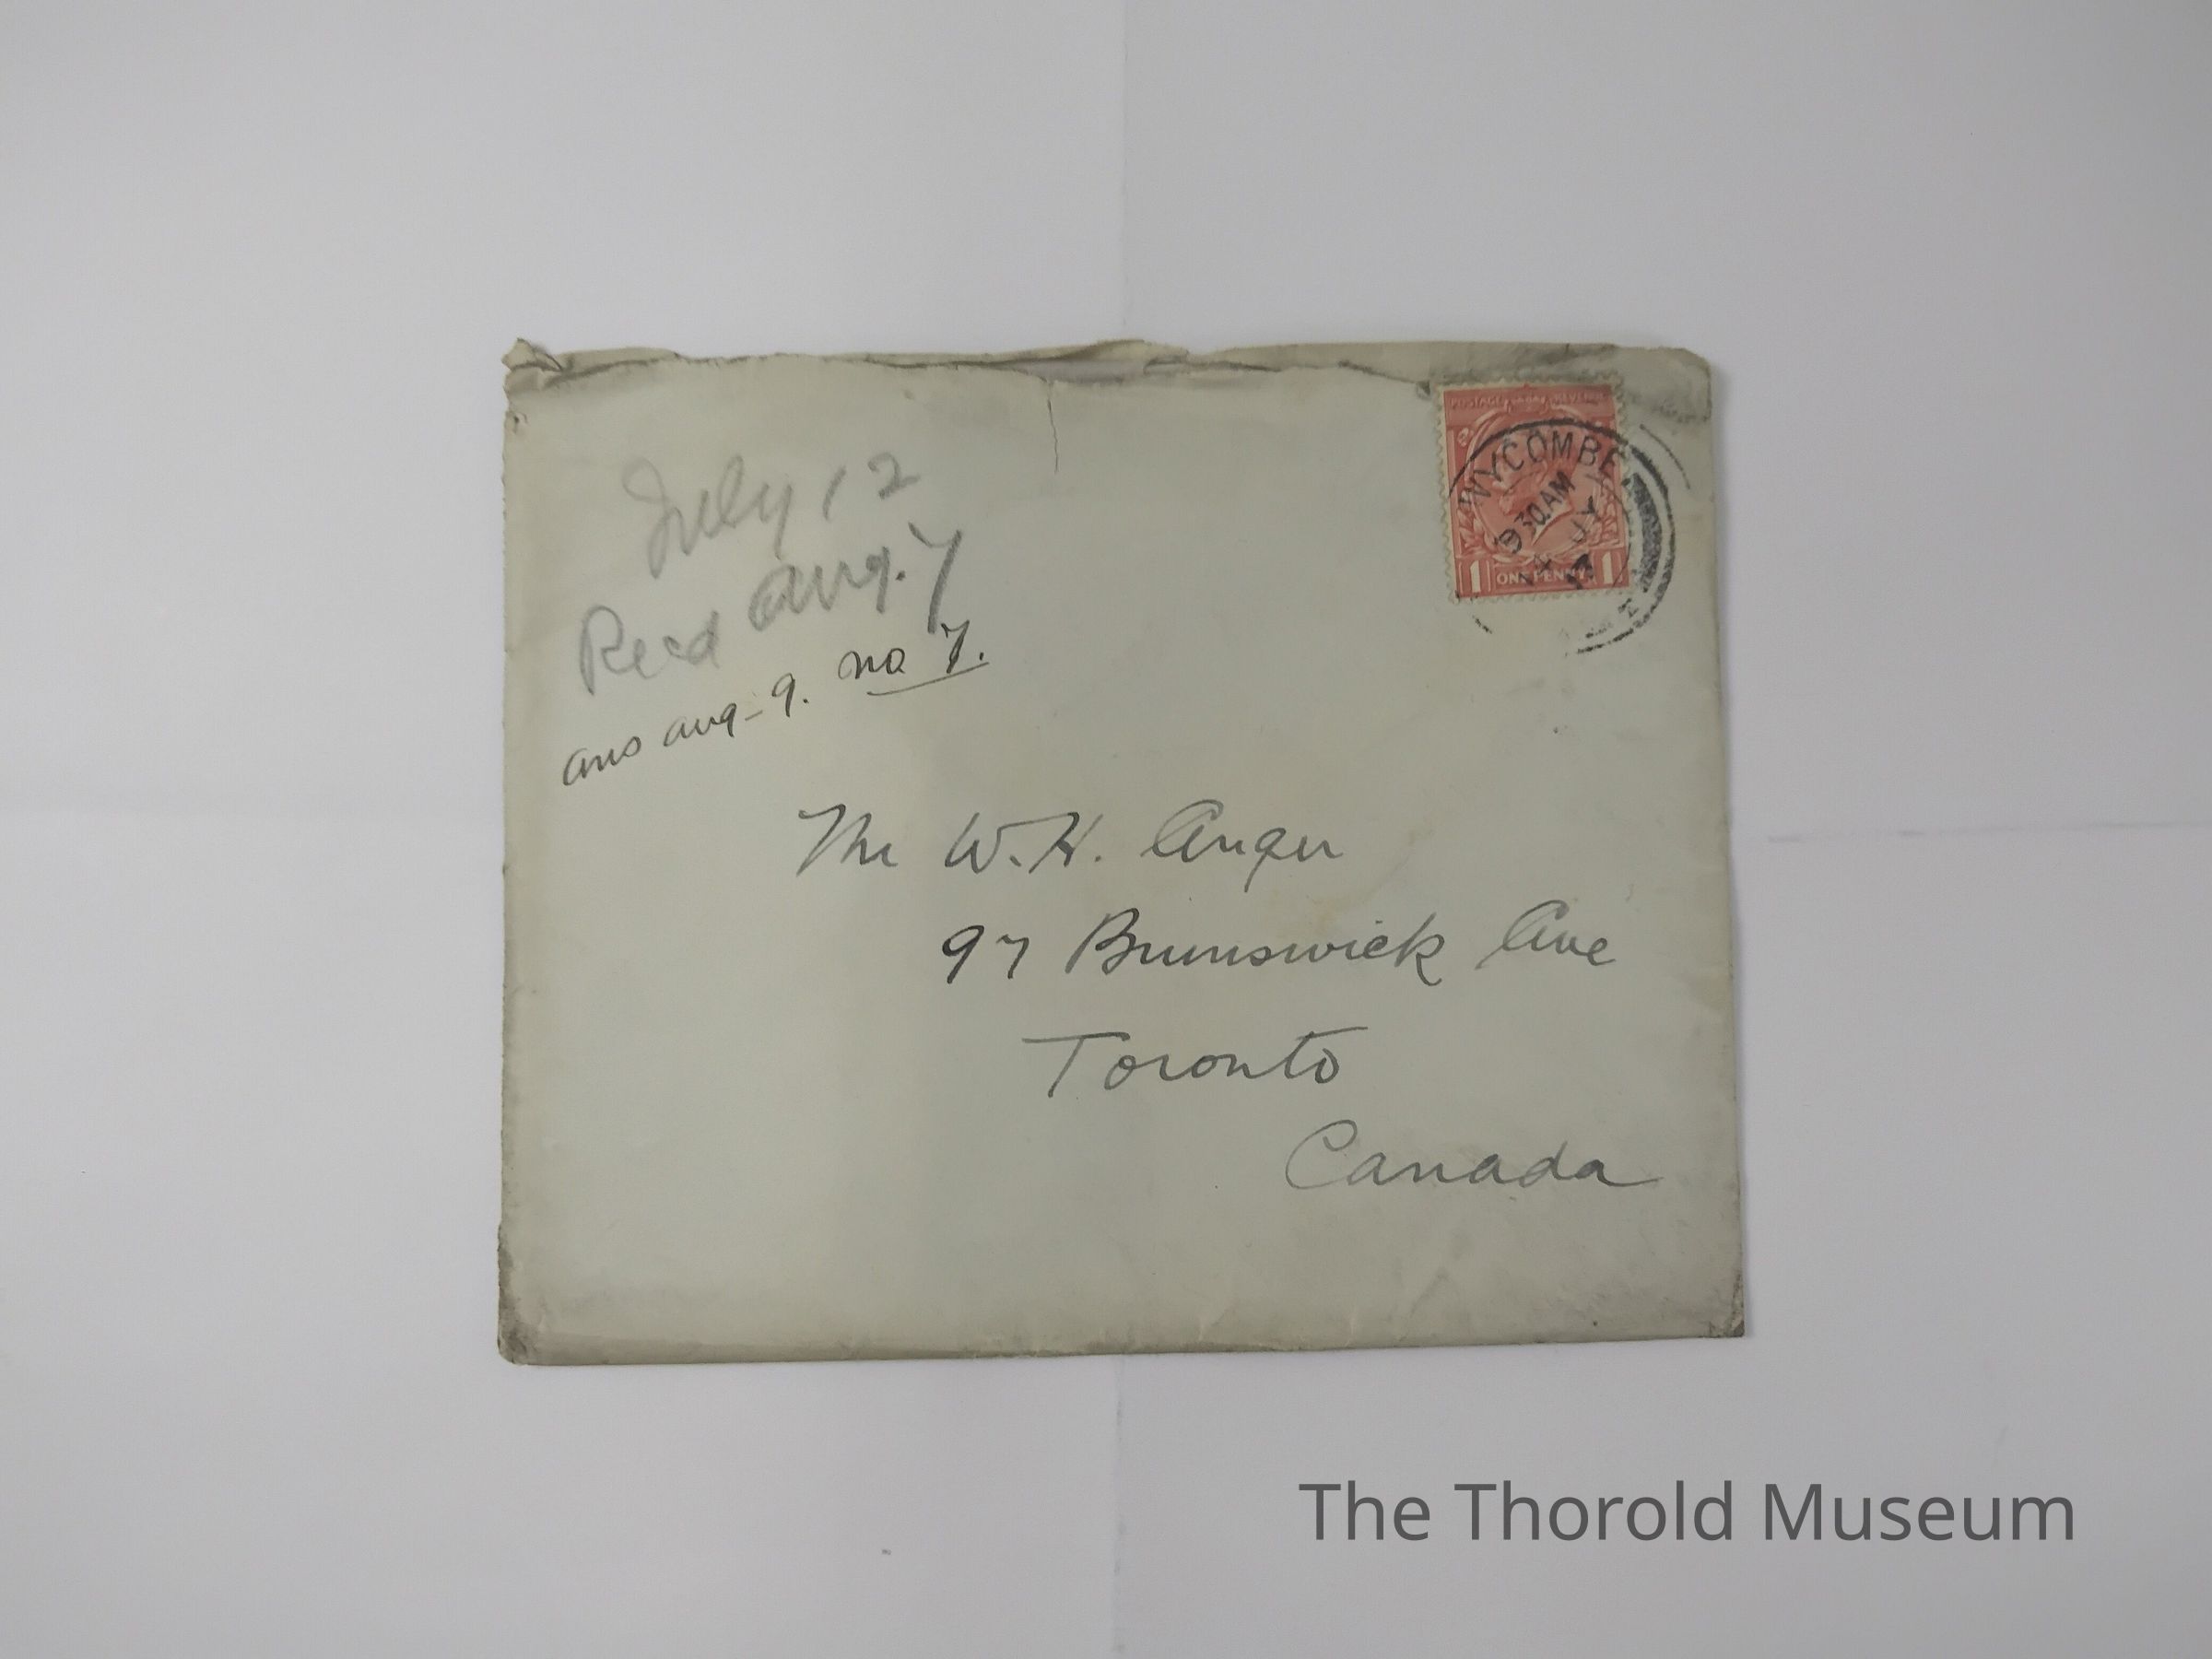 July 12
Recd Aug. 7
ans aug - 9. no 7.
POSTAGE REVENUE
WYCOMBE
930 AM
JY
17
1 ONE PENNY 1
Mr W. H. Anger
97 Brunswick Ave
Toronto
Canada
The Thorold Museum